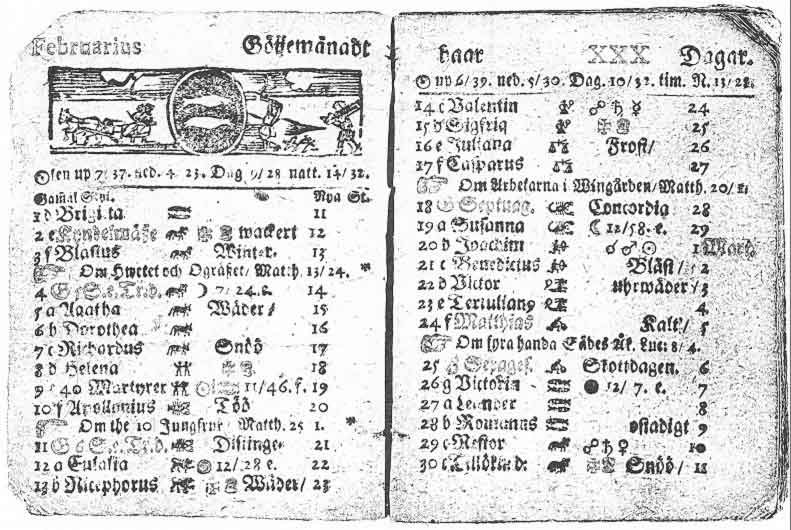 Februarius Götjemånadt
Solen up 7/37. ned. 4 23. Dag 9/28 natt. 14/32.
Gamal Styl. Nya St.
1 d Brigitta 11
2 e Kyndelmässe wackert 12
3 f Blasius Winter. 13
Om Hwetet och Ogräset/ Matth. 13/24.
4 G 5 S. e. Tr. d. 7/24. e. 14
5 a Agatha Wäder/ 15
6 b Dorothea 16
7 c Richardus Snöö 17
8 d Helena 18
9 e 40 Martyrer 11/46. f. 19
10 f Apollonius Töö 20
Om the 10 Jungfrur Matth. 25 1.
11 G 6 S. e. Tr. d. Distinge 21
12 a Eulalia 12/28 e. 22
13 b Nicephorus Wäder/ 23
haar XXX Dagar.
up 6/39. ned. 5/30. Dag. 10/32. tim. N. 13/28.
14 c Valentin ☍ ♄ ☿ 24
15 d Sigfrid 25
16 e Juliana Frost/ 26
17 f Casparus 27
Om Arbetarna i Wingården/ Matth. 20/1.
18 G Septuag. Concordia 28
19 a Susanna ☾ 12/58. e. 29
20 b Joachim ☌ ♂ ☉ 1 Mart.
21 c Benedictus Bläst/ 2
22 d Victor uhrwäder/ 3
23 e Tertulianq 4
24 f Matthias Kalt/ 5
Om fyra handa Sädes Åk. Luc: 8/4.
25 G Sexages. Skottdagen. 6
26 g Victorin ● 12/7. e. 7
27 a Leander 8
28 b Romanus ostadigt 9
29 c Nestor ☍ ♄ ♀ 10
30 c Snöö/ 11